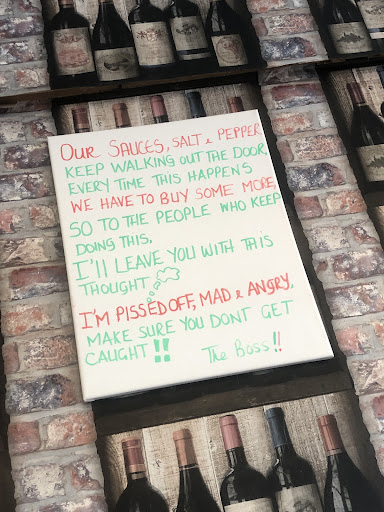 OUR SAUCES, SALT & PEPPER
KEEP WALKING OUT THE DOOR.
EVERY TIME THIS HAPPENS
WE HAVE TO BUY SOME MORE,
SO TO THE PEOPLE WHO KEEP
DOING THIS,
I'll LEAVE YOU WITH THIS
THOUGHT
I'M PISSED OFF, MAD & ANGRY,
MAKE SURE YOU DONT GET
CAUGHT !! The Boss !!